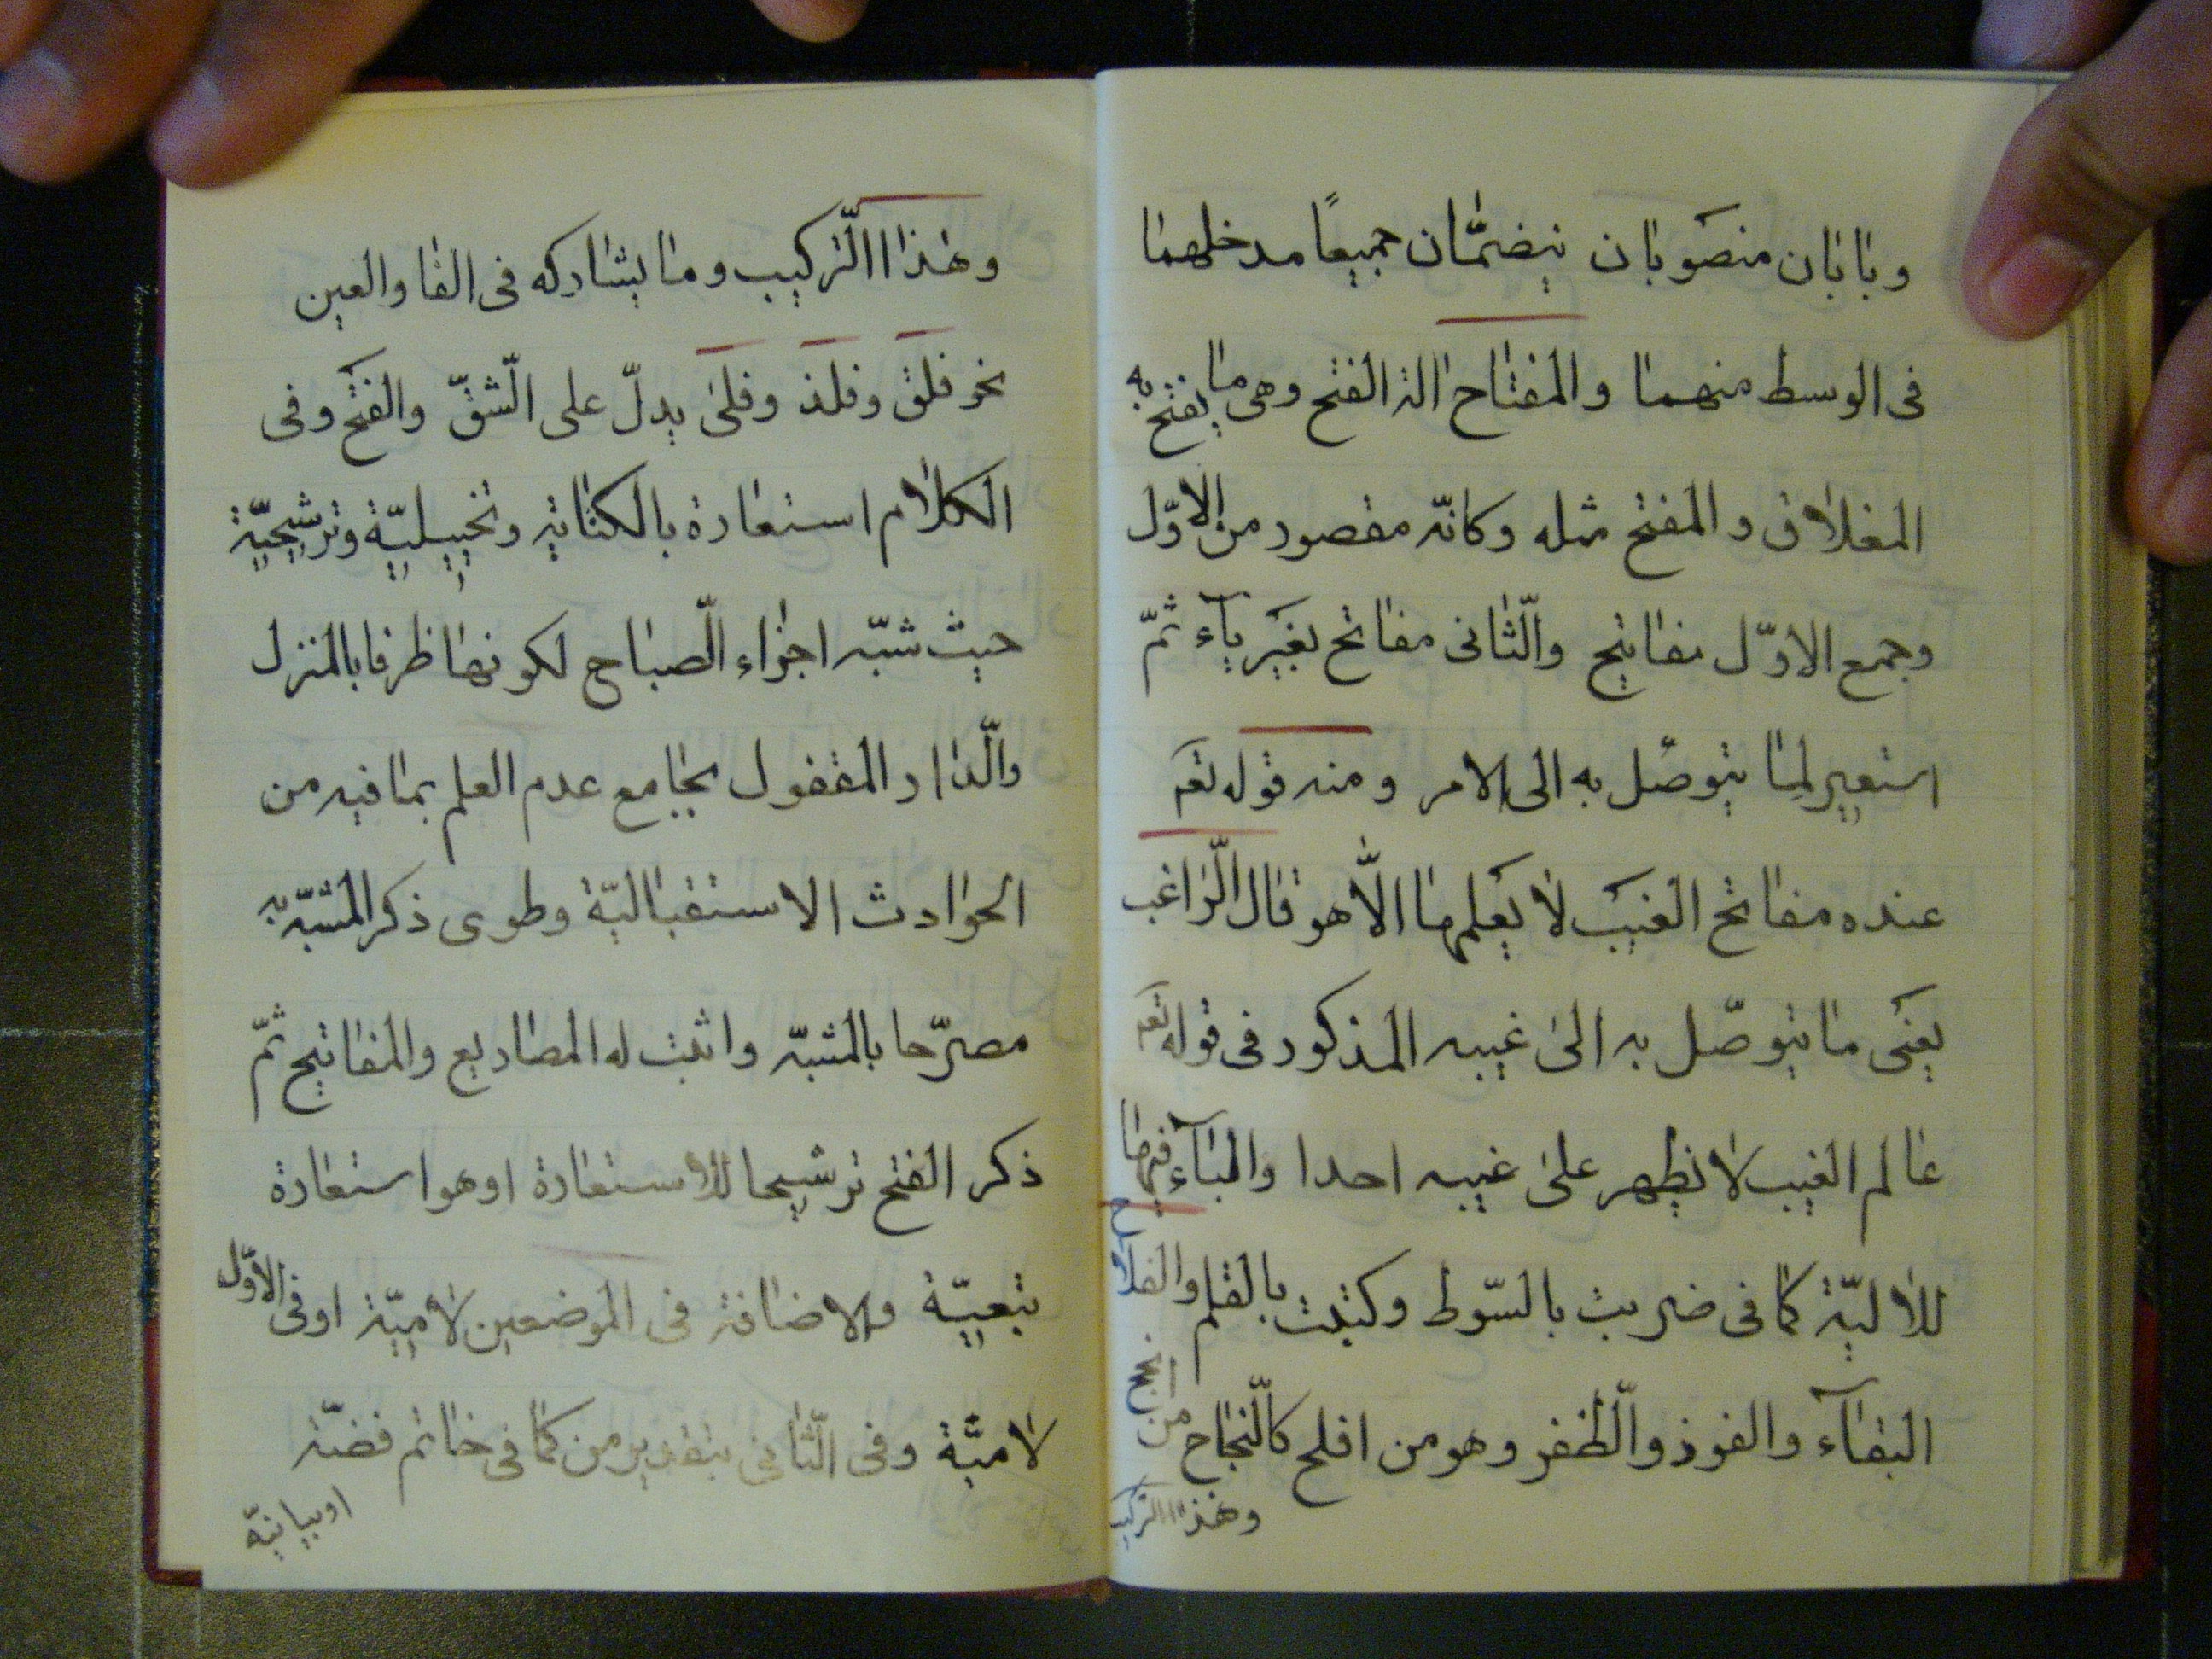 وبابان منصوبان ينضمّان جميعًا مدخلهما
فى الوسط منهما والمفتاح الة الفتح وهى ما يفتح به
المغلاق والمفتح مثله وكانّه مقصور من الاوّل
وجمع الاوّل مفاتيح والّثانى مفاتح بغير يآء ثمّ
استعير لما يتوصّل به الى الامر ومنه قوله تعم
عنده مفاتح الغيب لا يعلمها الّا هو قال الّراغب
يعنى ما يتوصّل به الى غيبه المذكور فى قوله تعم
عالم الغيب لا يظهر على غيبه احدا والبآء فيها
للاليّة كما فى ضربت بالسّوط وكتبت بالقلم والفلاح
البقآء والفوز والّظفر وهو من افلح كالّنجاح من انجح
وهذا الّتركيب
وهذا الّتركيب وما يشاركه فى الفا والعين
نحو فلق وفلذ وفلى يدلّ على الّشقّ والفتح وفى
الكلام استعارة بالكناية وتخييليّة وترشيحيّة
حيث شبّه اجزاء الّصباح لكونها ظرفا بالمنزل
والّدار المقفول بجامع عدم العلم بما فيه من
الحوادث الاستقباليّة وطوى ذكر المشبّه به
مصرّحا بالمشبّه واثبت له المصاريع والمفاتيح ثمّ
ذكر الفتح ترشيحا للاستعارة او هو استعارة
تبعيّة والاضافة فى الموضعين لاميّة او فى الاوّل
لاميّة وفى الّثانى بتقدير من كما فى خاتم فضّة
او بيانيّة